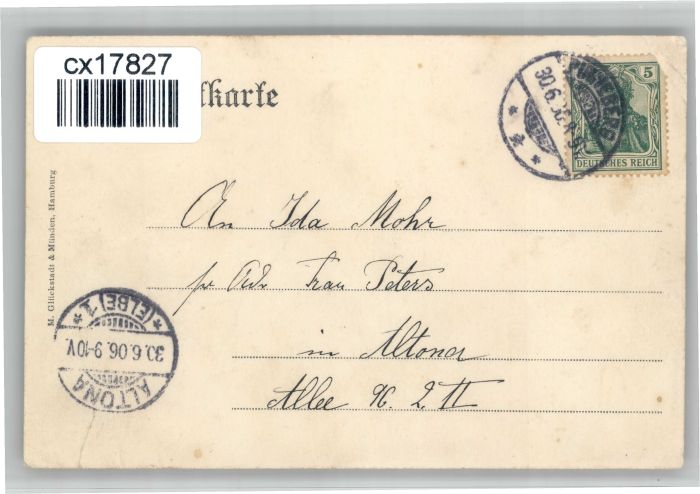 cx17827
tkarte
5
DEUTSCHES REICH
30.6.06.
M. Glückstadt & Münden, Hamburg
An Ida Mohr
pr Adr Frau Peters
in Altona
Allee 96. 2 II
* (ELBE) 1 *
30.6.06.9-10V.
ALTONA